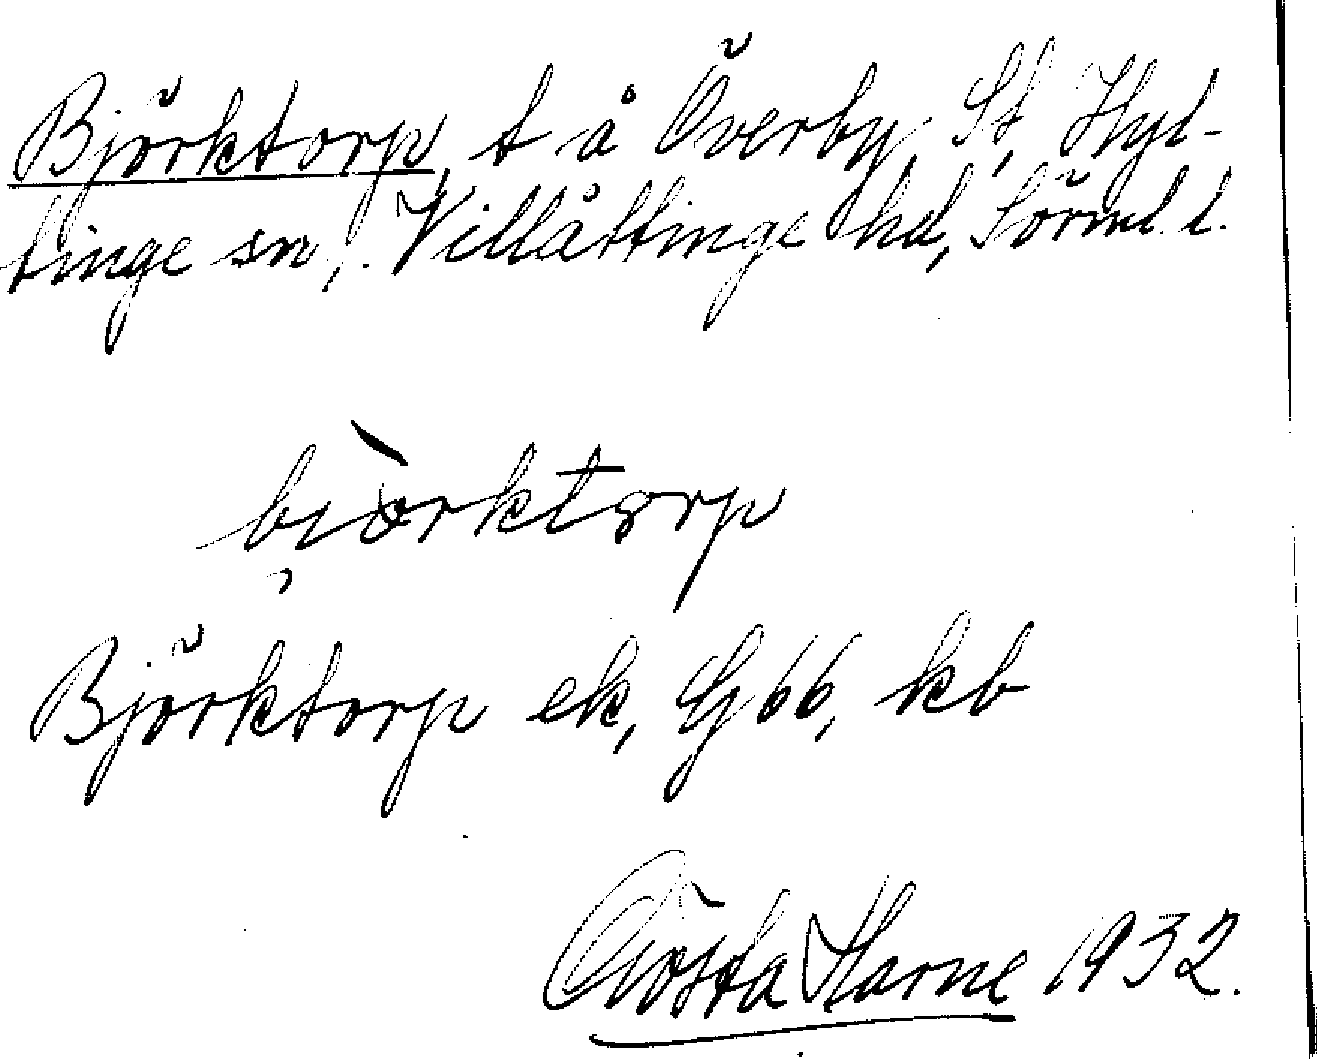 Björktorp, t å Överby, St, Hyl-
tinge sn, Villåttinge hd, Sörml. l.
bi̯òrktorp
Björktorp ek, G 66, kb
Gösta Harne 1932.